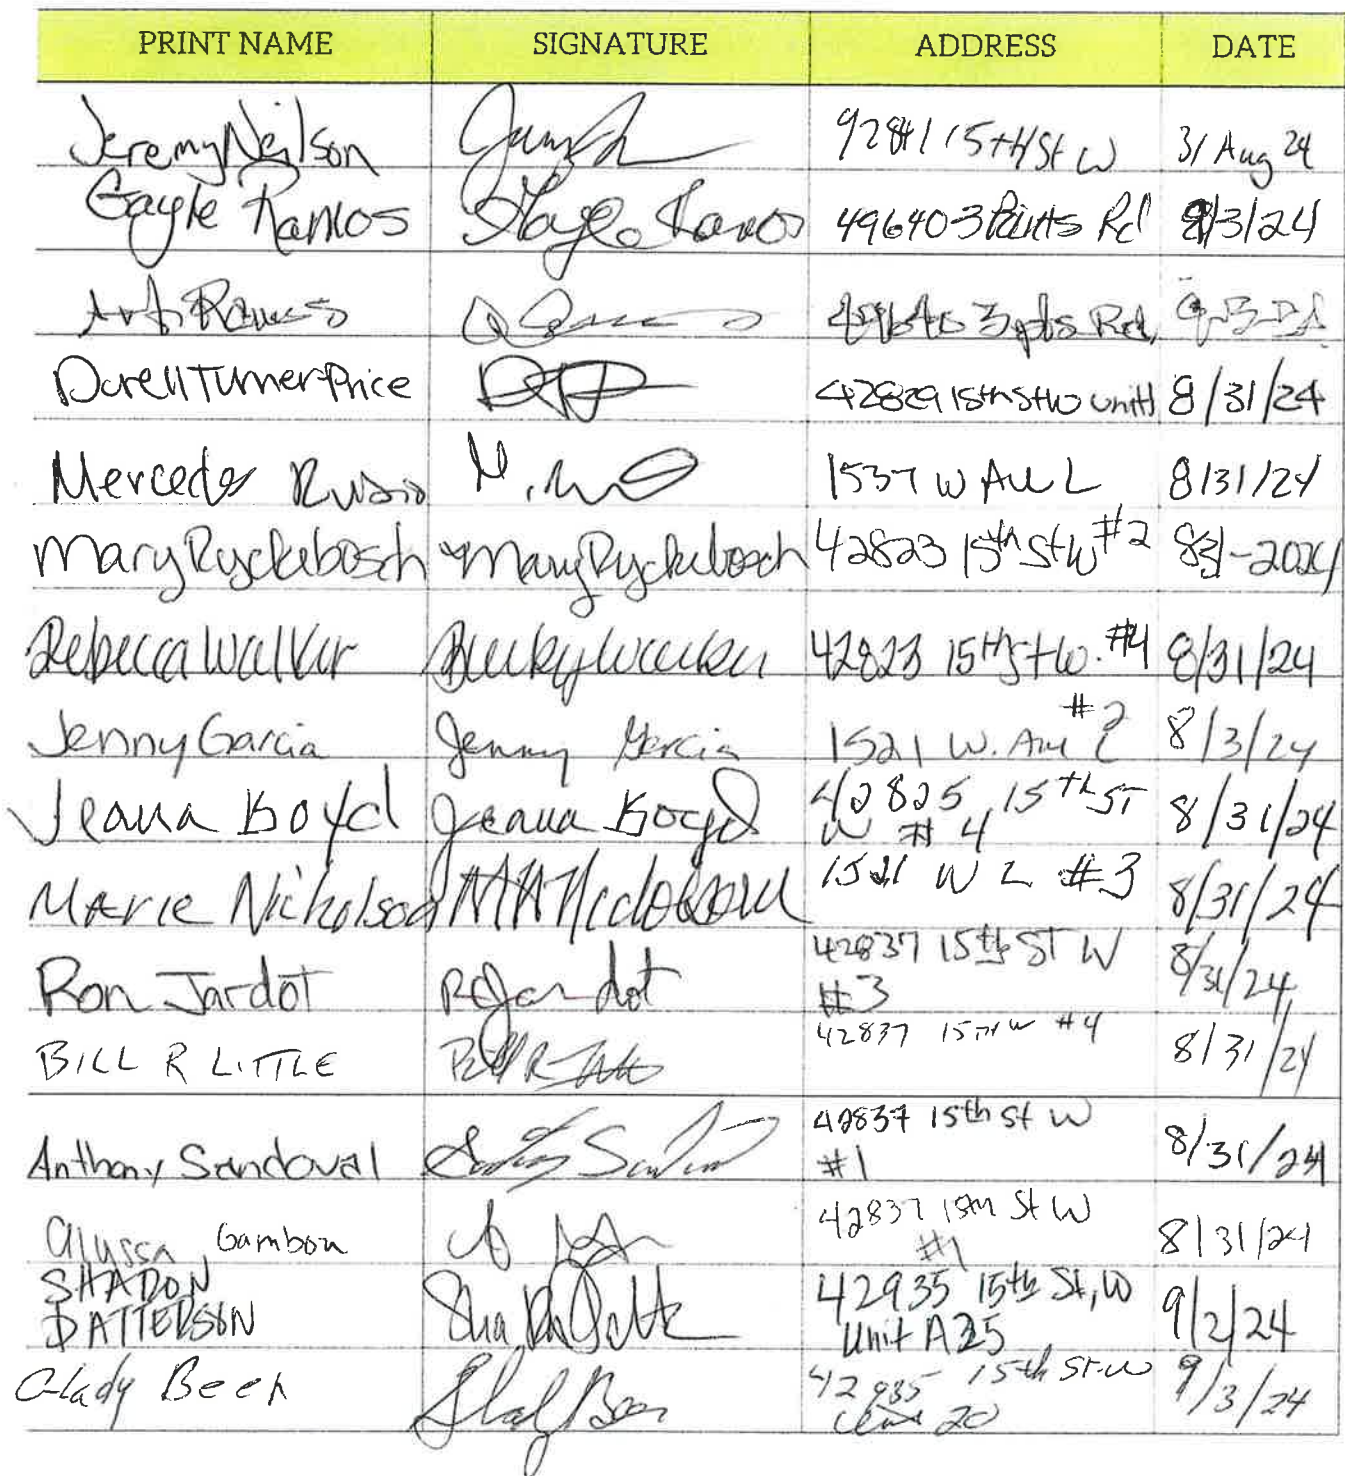 PRINT NAME SIGNATURE ADDRESS DATE
Jeremy Neilson 92841 15th St W 31 Aug 24
Gayle Ramos Gayle Ramos 49640 3 Points Rd 9/3/24
Art Ramos 49640 3 pts Rd,
Darell Turner Price 42829 15th St W unit 1 8/31/24
Mercedes Rubio 1537 W Ave L 8/31/24
Mary Ryckebosch Mary Ryckebosch 42823 15th St W #2 831-2024
Rebecca Walker Becky Walker 42823 15th St W. #4 8/31/24
Jenny Garcia Jenny Garcia 1521 W. Ave L #2 8/3/24
Jeana Boyd Jeana Boyd 42825 15th ST
W #4 8/31/24
Marie Nicholson 1521 W L #3 8/31/24
Ron Jardot R Jardot 42837 15th ST W
#3 8/31/24
BILL R LITTLE Bill R Little 42837 15TH W #4 8/31/24
Anthony Sandoval 42837 15th St W
#1 8/31/24
Alyssa Gamboa 42837 15th St W
#1 8/31/24
SHARON
PATTERSON 42935 15th St, W
Unit A25 9/2/24
Glady Beer 42935 15th St. W
20 9/3/24